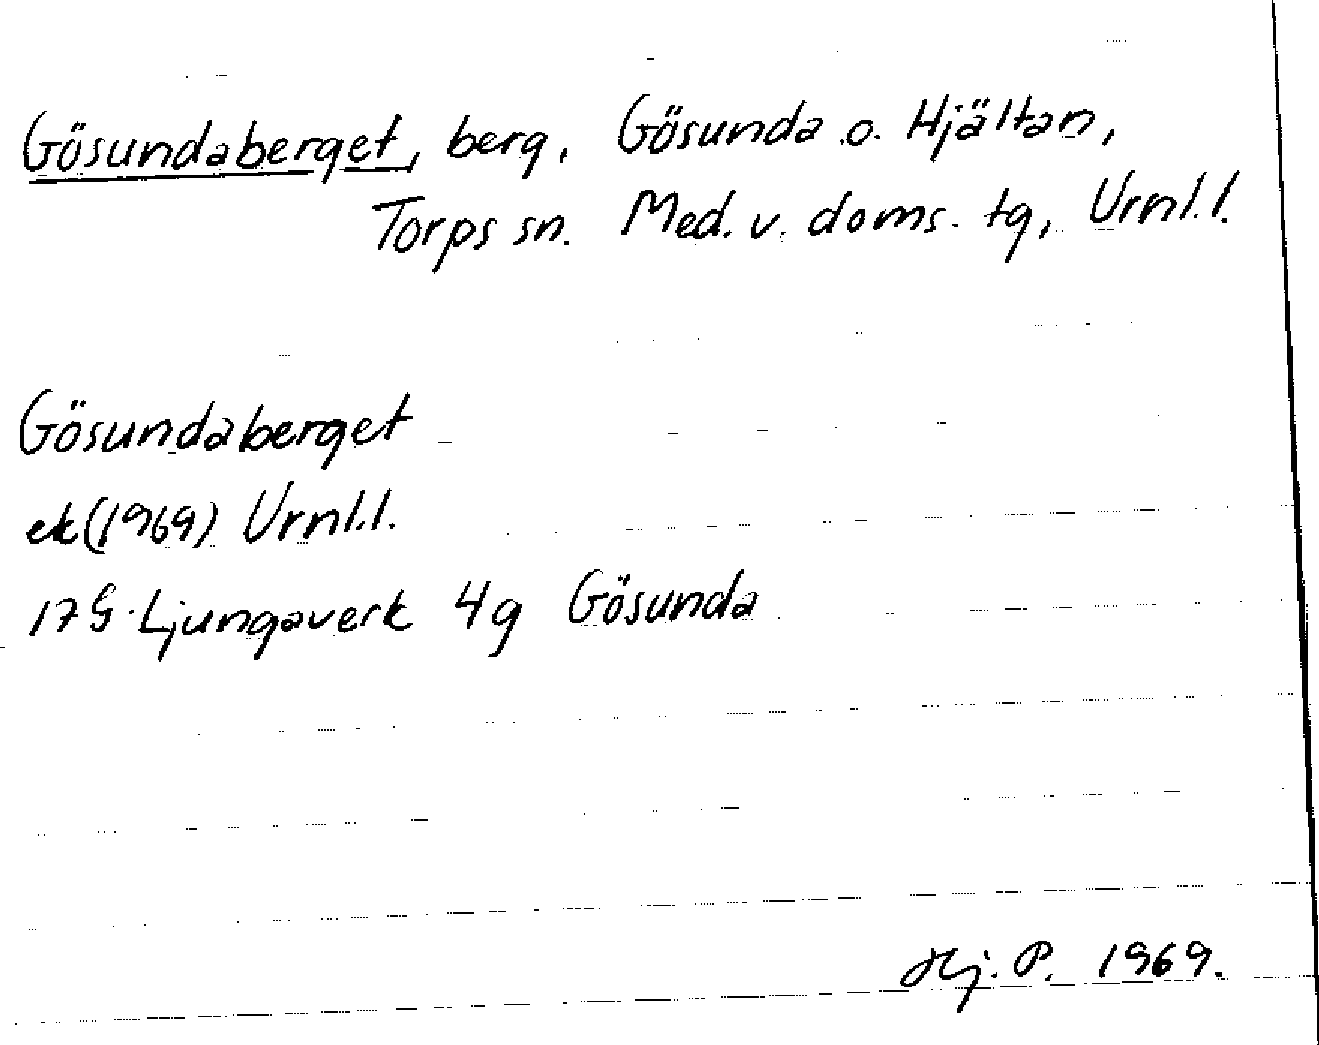 Gösundaberget, berg, Gösunda o. Hjältan,
Torps sn. Med. v. doms. tg, Vrnl. l.
Gösundaberget
ek(1969) Vrnl. l.
17G Ljungaverk 4g Gösunda
Hj. P. 1969.